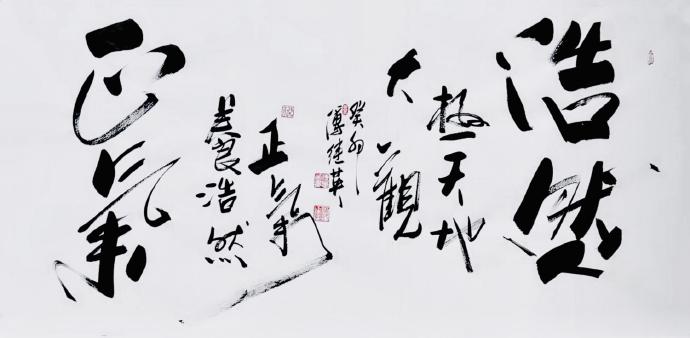 浩然
极天地
大觀
癸卯
傅继英
正氣
養浩然
正氣